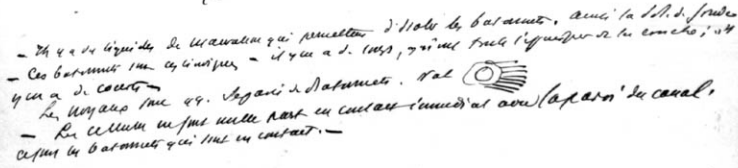 — Il y a des liquides de macération qui permettent d'isoler les batonnets. Ainsi la sol. de soude
— Ces batonnets sont cylindriques — il y en a de longs, qui ont toute l'épaisseur de la couche; il
y en a de courts —
Les noyaux sont qq. séparés de batonnets.
— Les cellules ne sont nulle part en contact immédiat avec la paroi du canal.
ce sont les batonnets qui sont en contact. —